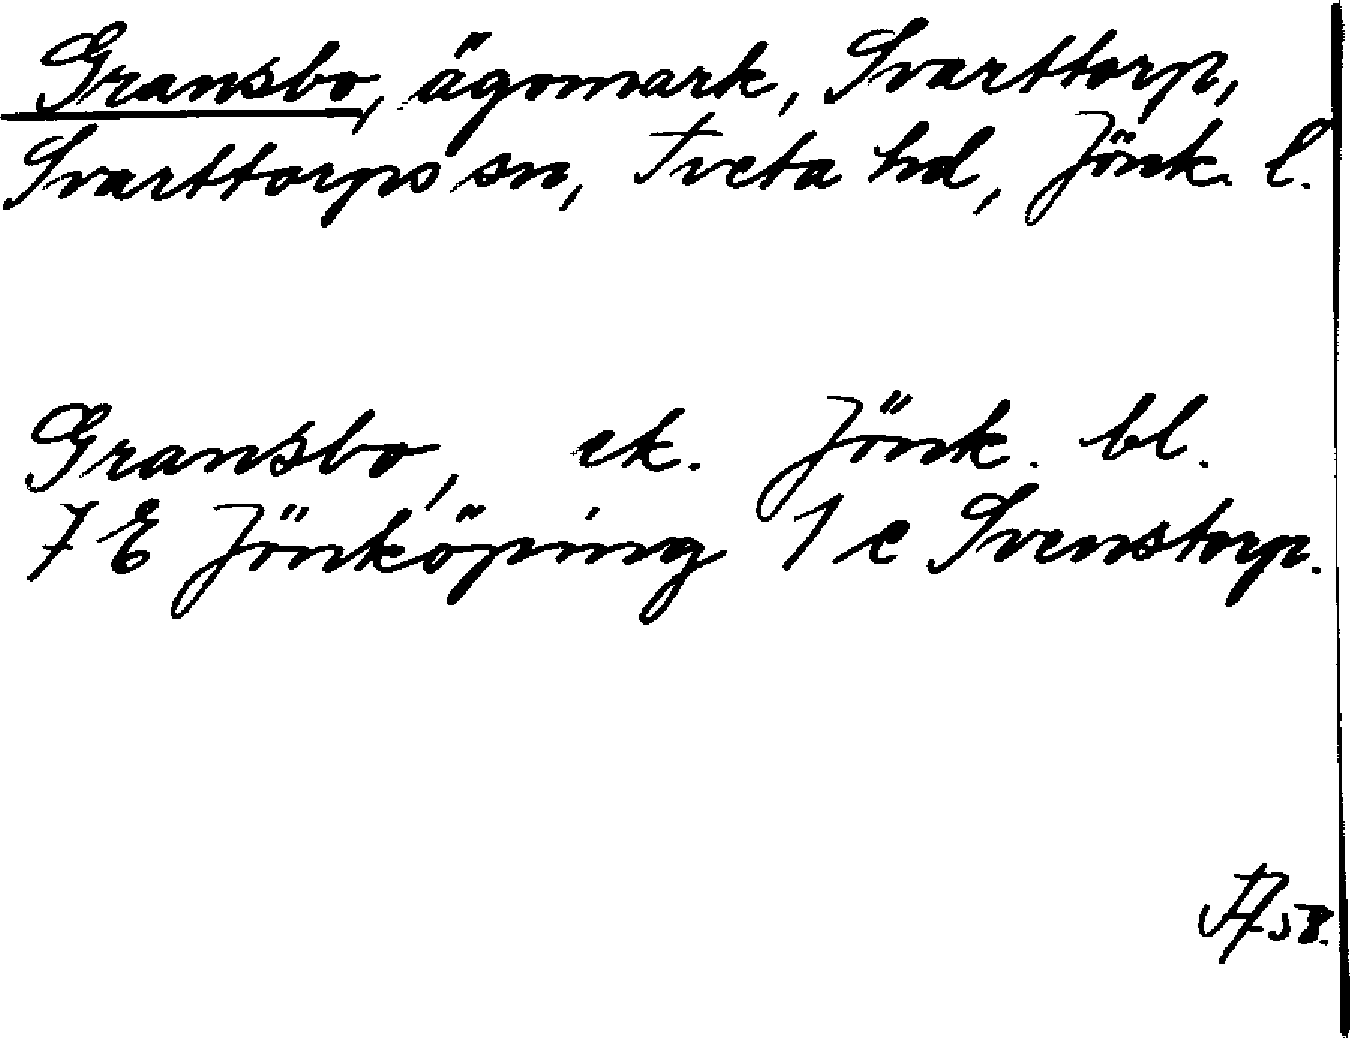 Gransbo, ägomark, Svarttorp,
Svarttorps sn, Tveta hd, Jönk. l.
Gransbo, ek. Jönk. bl.
7 E Jönköping 1 e Svenstorp.